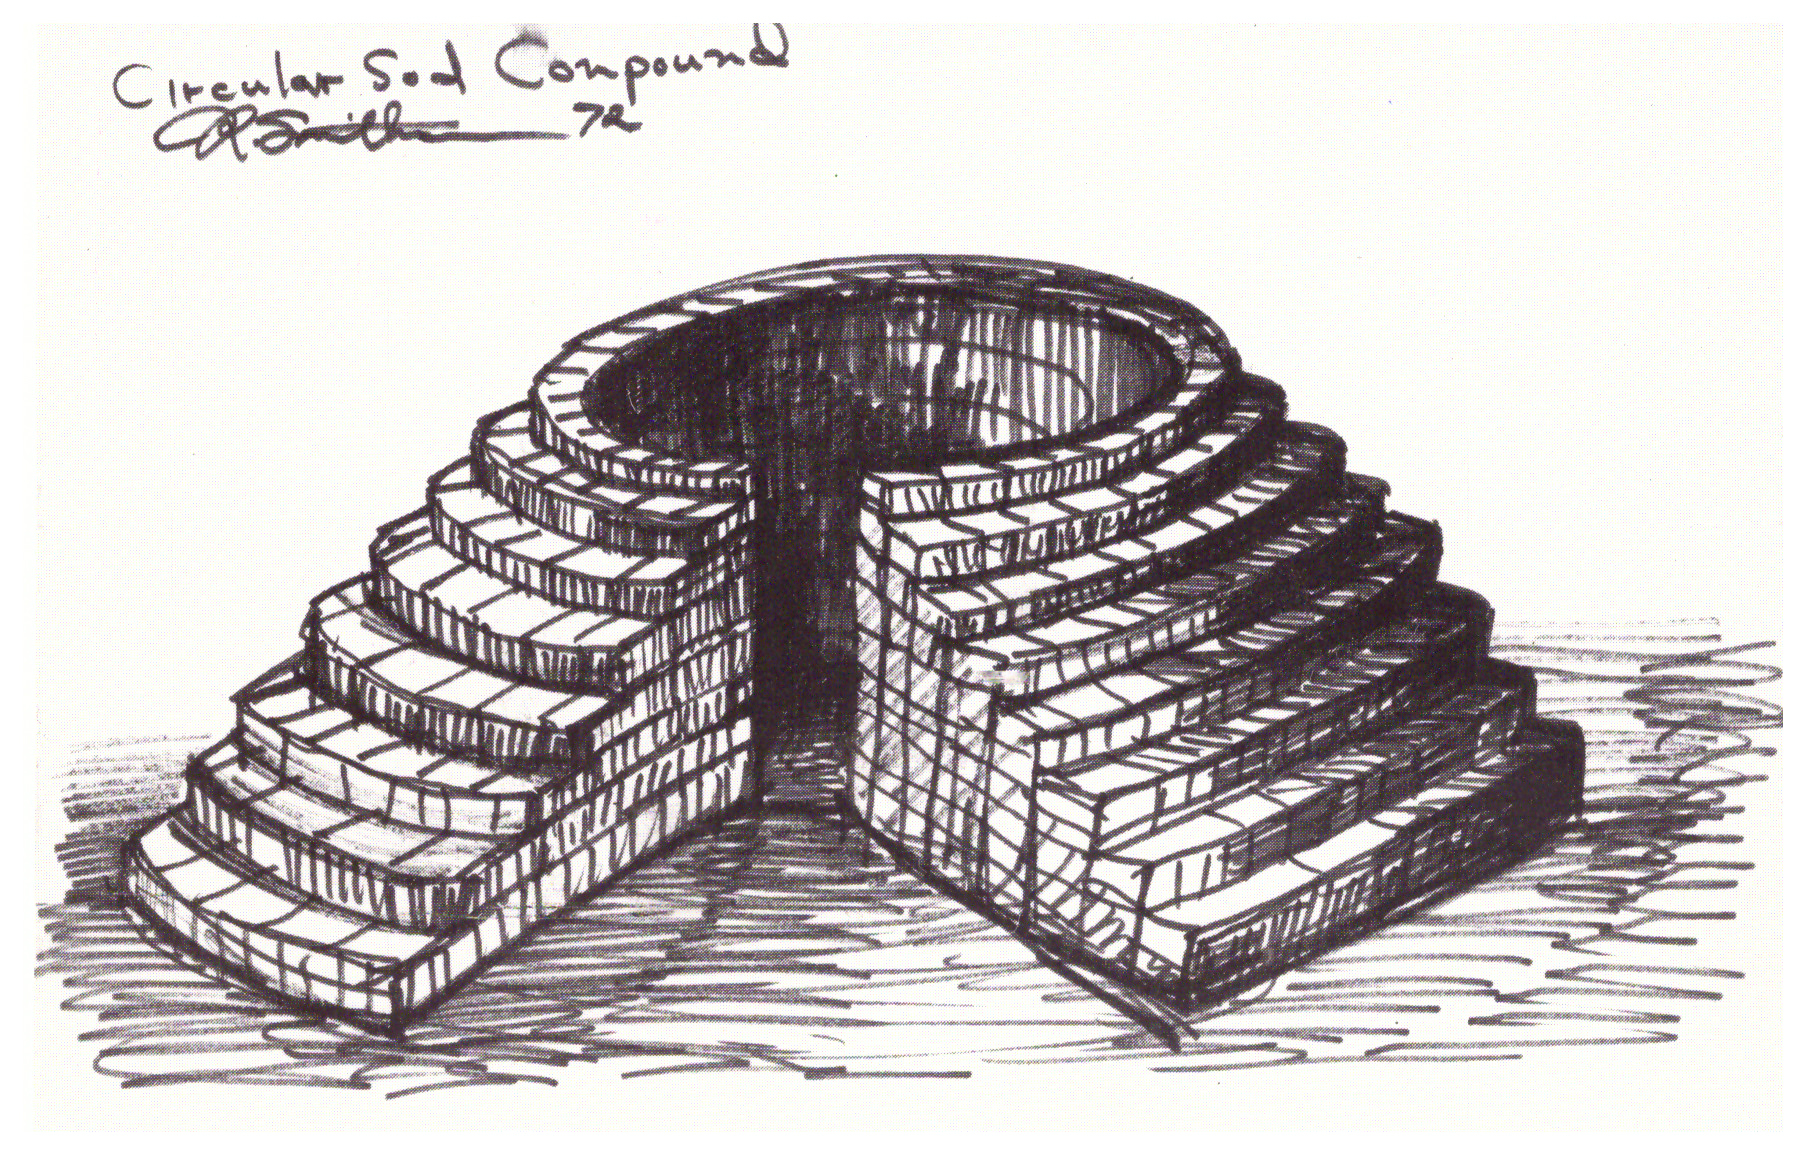 Circular Sod Compound
Smith 72